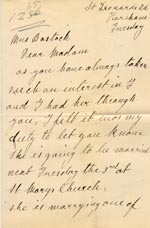 St Leonards Rd
Horsham
Tuesday
Miss Bostock
Dear Madam
as you have always taken
such an interest in I
and I had her through
you, I felt it was my
duty to let you know
She is going to be married
next Tuesday the 3rd at
St Marys Church,
she is marrying one of